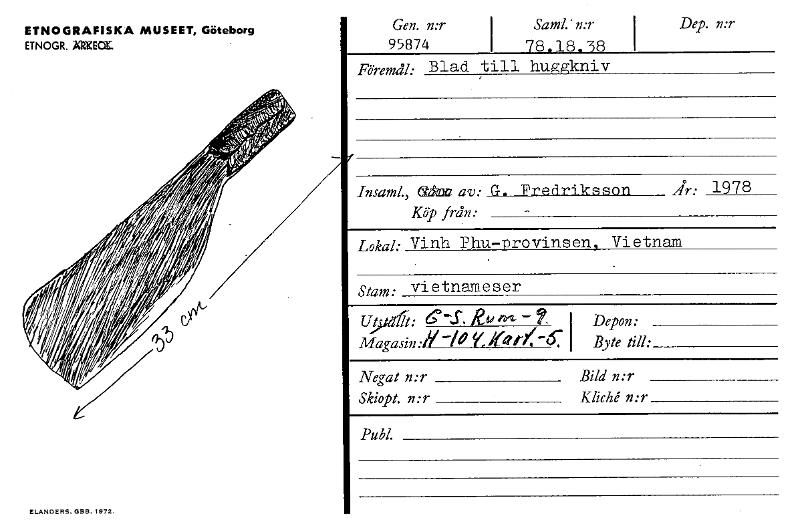 ETNOGRAFISKA MUSEET, Göteborg
ETNOGR. ARKEOL.
33 cm
ELANDERS. GBB. 1972.
Gen. n:r Saml. n:r Dep. n:r
95874 78.18.38
Föremål: Blad till huggkniv
Insaml., Gåva av: G. Fredriksson År: 1978
Köp från: -
Lokal: Vinh Phu-provinsen, Vietnam
Stam: vietnameser
Utställt: G-S. Rum-9. Depon:
Magasin: H-104. Kart.-5. Byte till:
Negat n:r Bild n:r
Skiopt. n:r Kliché n:r
Publ.